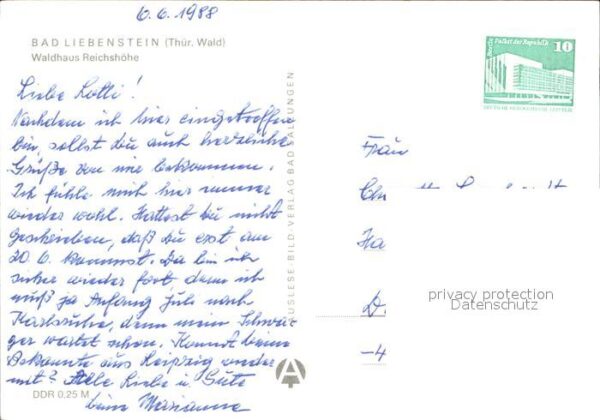 6.6.1988
BAD LIEBENSTEIN (Thür. Wald)
Waldhaus Reichshöhe
Liebe Lotti!
Nachdem ich hier eingetroffen
bin, sollst du auch herzliche
Grüße von mir bekommen.
Ich fühle mich hier immer
wieder wohl. Hattest du nicht
geschrieben, daß du erst am
20. 6. kommst. Da bin ich
sicher wieder fort, denn ich
muß ja Anfang Juli nach
Karlsruhe, denn mein Schwa-
ger wartet schon. Kommt deine
Bekannte aus Leipzig wieder
mit? Alle Liebe u. Gute
deine Marianne
DDR 0,25 M
AUSLESE-BILD-VERLAG BAD SALZUNGEN
A
Berlin Palast der Republik
10
Frau
Ha
D.
-4
privacy protection
Datenschutz